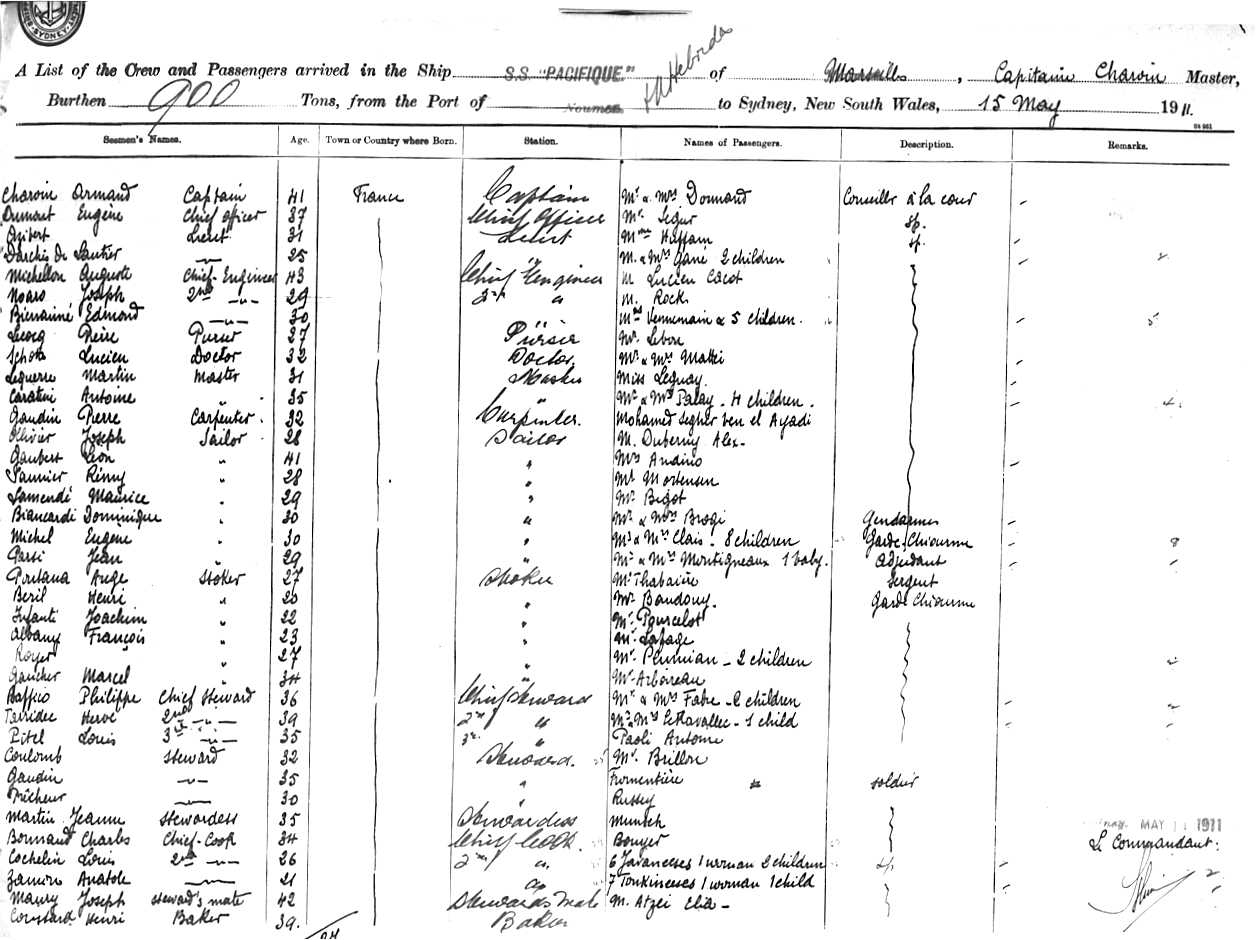 SYDNEY
A List of the Crew and Passengers arrived in the Ship S.S. "PACIFIQUE." of Marseilles, Capitain Charvin Master,
Hebrides
Burthen 900 Tons, from the Port of Noumea to Sydney, New South Wales, 15 May 1911.
Seamen's Names. Age. Town or Country where Born. Station. Names of Passengers. Description. Remarks.
Charvin Armand Captain 41 France Captain Mr & Mrs Dornand Conseiller à la cour
Dumont Eugène Chief Officer 37 Chief Officer Mr Segur sp.
Lieut 31 Lieut Mme Haffam sp.
25 M. & Mrs Gané 2 children 2
Michellon Auguste Chief-Engineer 43 Chief Engineer M. Lucien Cacot
Noaro Joseph 2nd 29 2nd " M. Rock
Bienaimé Edmond 30 Vennemain & 5 children. 5
Lecocq Pierre Purser 27 Purser Mr Lebon
Schotz Lucien Doctor 32 Doctor Mr & Mrs Mattei
Leguerre Martin Master 31 Master Miss Leguay.
Caratini Antoine " 35 " Mr & Mrs Palay - 4 children. 4
Gaudin Pierre Carpenter. 32 Carpenter. Mohamed Segher ben el Ayadi
Ollivier Joseph Sailor 28 Sailor M. Duberny Alex-
Gaubert Léon " 41 " Mrs Andino
Saunier Rémy " 28 " Mr Mortensen
Lamendé Maurice " 29 " Mr Bigot
Biancardi Dominique " 30 " Mr & Mrs Brogi Gendarmes
Michel Eugène " 30 " Mr & Mrs Clais - 8 children Garde-Chiourme 8
Parsi Jean " 29 " Mr & Mrs Montigneaux 1 baby. Adjudant
Portana Ange Stoker 27 Stoker Mr Thabaière Sergent
Beril Henri " 20 " Mr Baudouy. Garde Chiourme
Infanti Joachim " 22 " Mr Pourcelot
Albany François " 23 " Mr Lafage
Royer " 27 " Mr Permian - 2 children 2
Gaucher Marcel " 34 " Mr Arboireau
Baffico Philippe Chief Steward 36 Chief Steward Mr & Mrs Fabre - 2 children 2
Hervé 2nd 39 2nd " Mr & Mrs LeRavallec - 1 child
Pitel Louis 3rd 35 3rd " Paoli Antoine
Coulomb Steward 32 Steward. Mr Brillon
Gaudin 35 " Fromentière soldier
Trécheur 30 " Russey
Martin Jeanne Stewardess 35 Stewardess Munsch
Bonnand Charles Chief-Cook 34 Chief Cook. Bouyer MAY 1911
Le Commandant:
Cochelin Louis 2nd 26 2nd " 6 Javaneeses 1 woman 2 children 2
Zamore Anatole 21 " 7 Tonkineeses 1 woman 1 child
Maury Joseph Steward's mate 42 Stewards Mate M. Atzei Elia-
Coustard Henri Baker 39. Baker